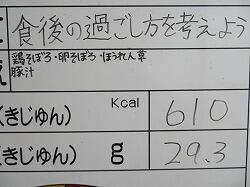 食後の過ごし方を考えよう
鶏そぼろ・卵そぼろ・ほうれん草
豚汁
(きじゅん) Kcal 610
(きじゅん) g 29.3